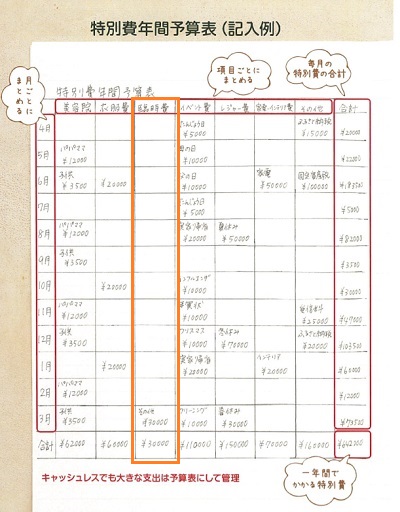 特別費年間予算表(記入例)
月ごとに
まとめる
項目ごとに
まとめる
毎月の
特別費の合計
特別費年間予算表
美容院 衣服費 臨時費 イベント費 レジャー費 家電・インテリア費 その他 合計
4月 たんじょう日 ふるさと納税
¥5000 ¥15000 ¥20000
5月 パパ/ママ 母の日
¥12000 ¥10000 ¥22000
6月 子供 父の日 家電 固定資産税
¥3500 ¥20000 ¥10000 ¥50000 ¥100000 ¥183500
7月 たんじょう日
¥5000 ¥5000
8月 パパ/ママ 実家帰省 夏休み
¥12000 ¥20000 ¥50000 ¥82000
9月 子供
¥3500 ¥3500
10月 インフルエンザ
¥20000 ¥10000 ¥30000
11月 パパ/ママ 年賀状
¥12000 ¥10000 ¥25000 ¥47000
12月 子供 クリスマス 冬休み ふるさと納税
¥3500 ¥10000 ¥70000 ¥20000 ¥103500
1月 実家帰省 インテリア
¥20000 ¥20000 ¥20000 ¥60000
2月 パパ/ママ
¥12000 ¥12000
3月 子供 その他 クリーニング 春休み
¥3500 ¥30000 ¥10000 ¥30000 ¥73500
合計 ¥62000 ¥60000 ¥30000 ¥110000 ¥150000 ¥70000 ¥160000 ¥642000
キャッシュレスでも大きな支出は予算表にして管理
一年間で
かかる特別費